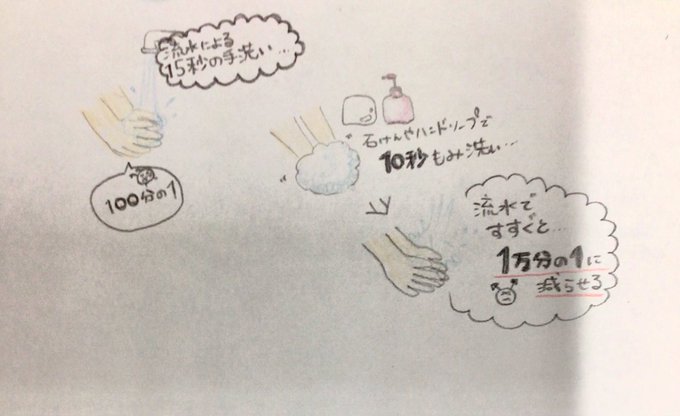 流水による
15秒の手洗い…
100分の1
石けんやハンドソープで
10秒もみ洗い…
流水で
すすぐと…
1万分の1に
減らせる